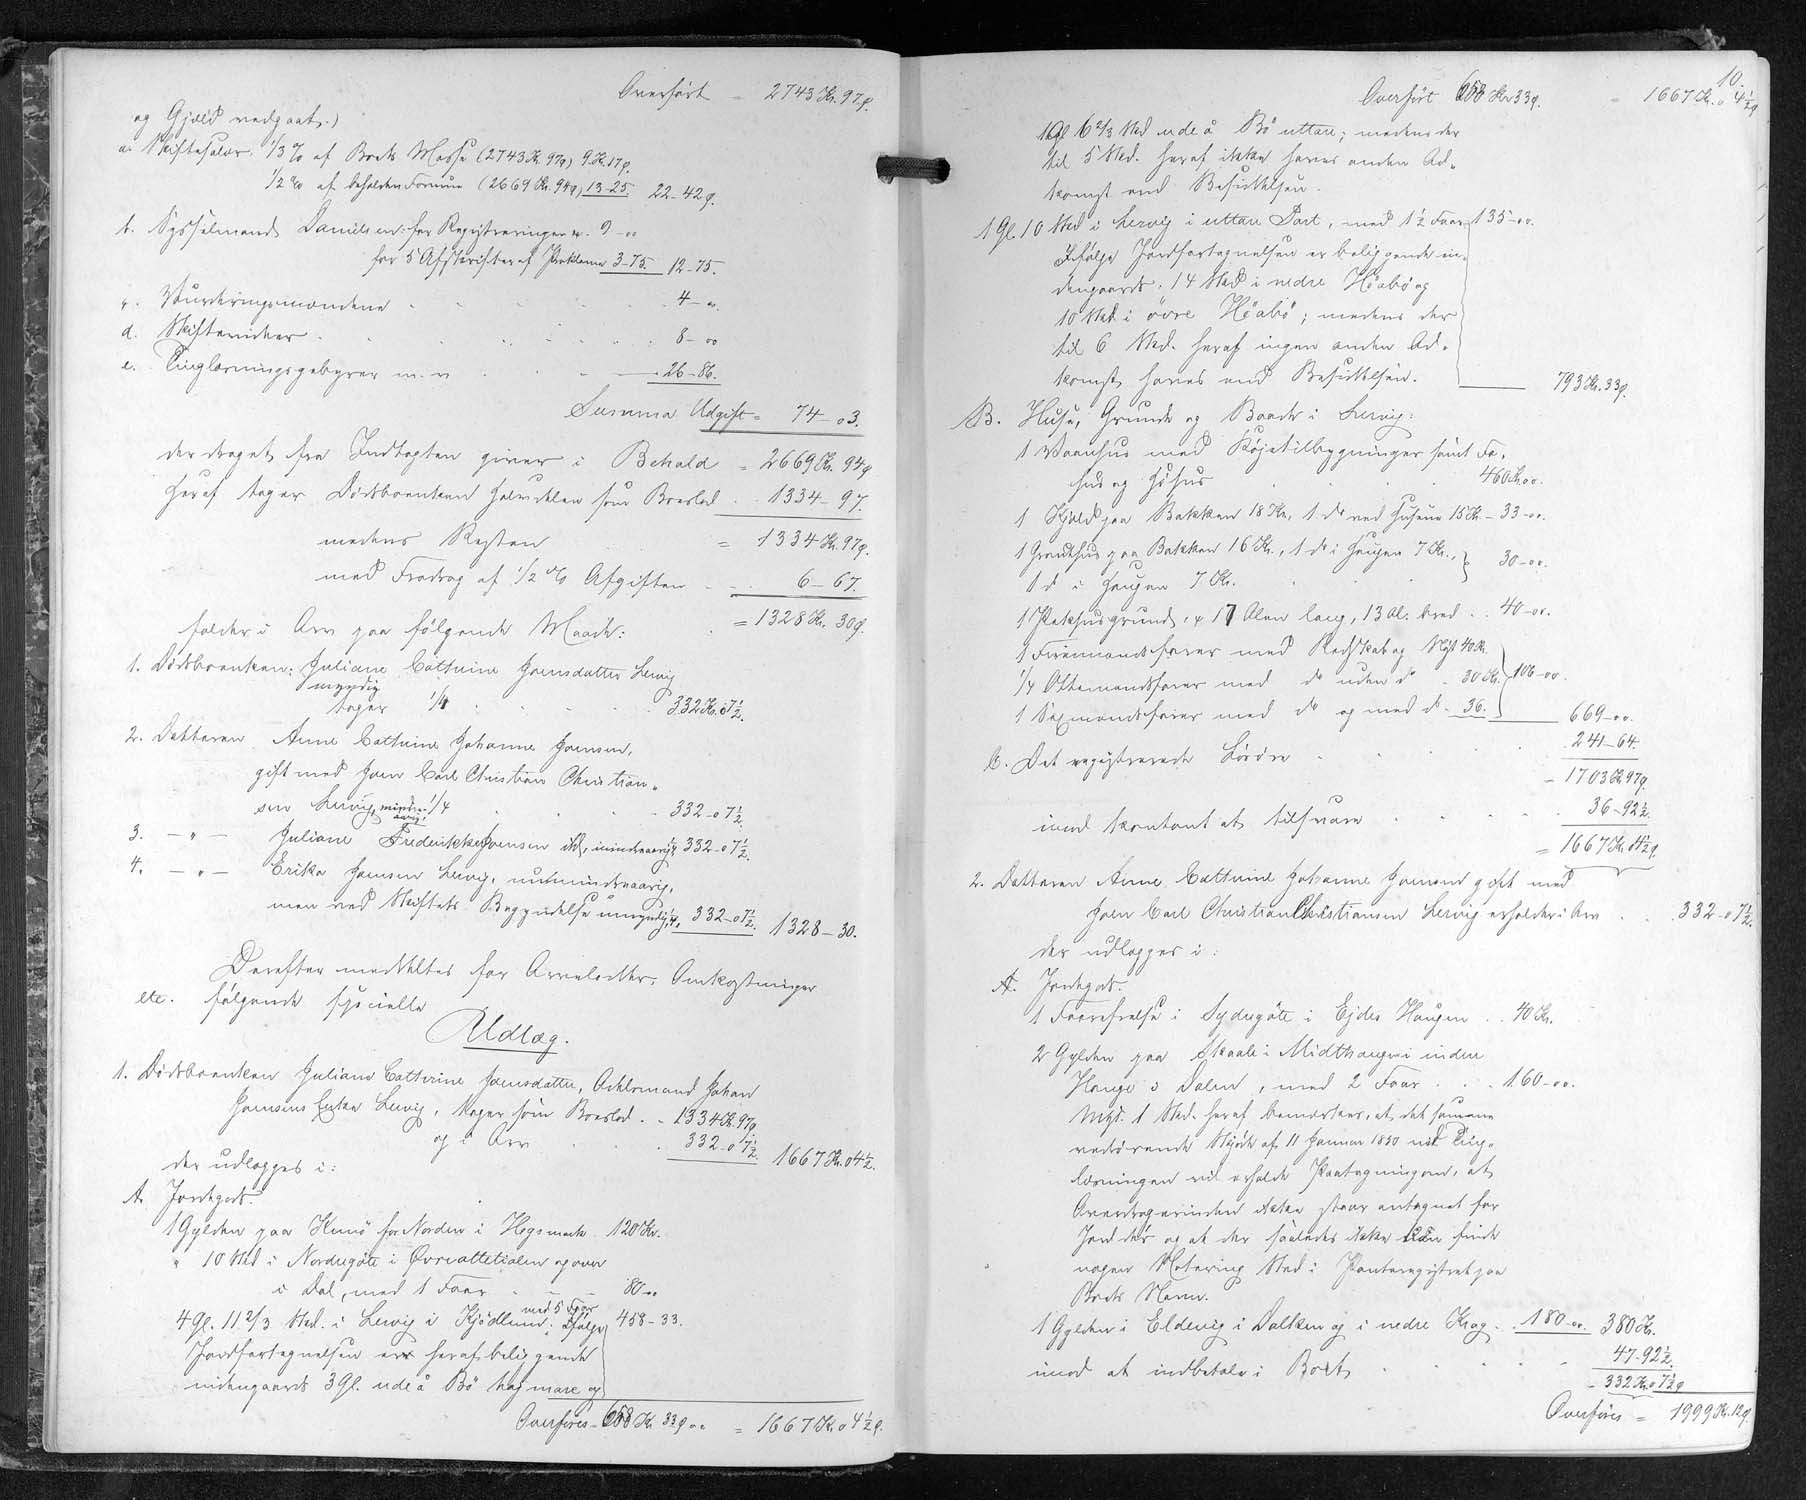 Overført = 2743 Kr. 97 ø.
og Gjæld vedgaat.)
a. Skiftesalær: 1/3 % af Boets Masse (2743 Kr. 97 ø) 9 Kr. 17 ø.
1/2 % af beholden Formue (2669 Kr. 94 ø) 13-25 22-42 ø.
b. Sysselmand Danielsen: for Registreringen 9-00
for 5 Afskrifter af Proklama 3-75. 12-75.
c. Vurderingsmændene 4-00.
d. Skiftevidner 8-00
e. Tinglæsningsgebyrer m. v. 26-86.
Summa Udgift = 74-03.
der draget fra Indtægten giver i Behold = 2669 Kr. 94 ø
heraf tager Dødsboenken Halvdelen som Boeslod 1334-97.
medens Resten = 1334 Kr. 97 ø.
med Fradrag af 1/2 % Afgiften 6-67.
= 1328 Kr. 30 ø.
falder i Arv paa følgende Maade:
1. Dødsboenken: Juliane Cathrine Joensdatter Lervig
myndig
tager 1/4 332 Kr. 07 1/2.
2. Datteren Anne Cathrine Johanne Joensen,
gift med Joen Carl Christian Christian-
sen Lervig, mindre-
aarig, 1/4 332-07 1/2.
3. -"- Juliane Frederikke Joensen ibd, mindreaarig 1/4 332-07 1/2.
4. -"- Erika Joensen Lervig, nu mindreaarig,
men ved Skiftets Begyndelse umyndig, 1/4, 332-07 1/2. 1328-30.
Derefter meddeltes for Arvelodder, Omkostninger
etc. følgende specielle
Udlæg.
1. Dødsboenken Juliane Cathrine Joensdatter, Odelsmand Johan
Joensens Enke Lervig, tager som Boeslod 1334 Kr. 97 ø
og i Arv 332-07 1/2. 1667 Kr. 04 1/2.
der udlægges i:
A. Jordegods.
1 Gylden paa Kunø for Norden i Hegsmark 120 Kr.
" 10 Skd i Nordregøte i Øvreattetialen og over
i Dal, med 1 Faar 80-00
4 Gl. 11 2/3 Skd. i Lervig i Kjødlum, med 5 Faar. Ifølge 458-33.
Jordfortegnelsen er heraf beliggende
indengaards 3 Gl. ude å Bø hajmare og
Overføres 658 Kr. 33 ø = 1667 Kr. 04 1/2 ø.
10.
Overført 658 Kr 33 ø. = 1667 Kr. 04 1/2 ø
1 Gl 6 2/3 Skd ude å Bø uttare; medens der
til 5 Skd. heraf ikke haves anden Ad-
komst end Besiddelsen.
1 Gl. 10 Skd i Lervig i uttare Part, med 1 1/2 Faar 135-00.
Ifølge Jordfortegnelsen er beliggende in-
dengaards: 14 Skd i nedre Höabö og
10 Skd i øvre Höabö; medens der
til 6 Skd. heraf ingen anden Ad-
komst haves end Besiddelsen. 793 Kr. 33 ø.
B. Huse, Grunde og Baade i Lervig:
1 Vaanhus med Køjetilbygninger samt Fæ-
hus og Høhus 460 Kr 00.
1 Kjæld paa Bakken 18 Kr., 1 do ved Husene 15 Kr - 33-00.
1 Grundhus paa Bakken 16 Kr., 1 do i Haugen 7 Kr.,
1 do i Haugen 7 Kr. 30-00.
1 Pakhusgrund, 17 Alen lang, 13 Al. bred 40-00.
1 Firemandsfarer med Redskab og Nyst 40 Kr.
1/4 Ottemandsfarer med do uden do 30 Kr. 106-00.
1 Sexmandsfarer med do og med do 36. 669-00.
C. Det registrerede Løsøre 241-64.
1703 Kr 97 ø.
imod kontant at tilsvare 36-92 1/2.
= 1667 Kr. 04 1/2 ø.
2. Datteren Anne Cathrine Johanne Joensen gift med
Joen Carl Christian Christiansen Lervig erholder i Arv 332-07 1/2.
der udlægges i:
A. Jordegods.
1 Faarefrelse i Sydregøte i Ejdes Haugen 40 Kr.
2 Gylden paa Skaale i Midthaugen i indre
Hauge o Dalen, med 2 Faar 160-00.
Mht. 1 Skd. heraf bemærkes, at det samme
vedrørende Skjøde af 11 Januar 1850 ved Ting-
læsningen vil erholde Paategning om, at
Overdragerinden ikke staar antegnet for
Jorden og at der saaledes ikke kan finde
nogen Notering Sted i Panteregistret paa
Boets Navn.
1 Gylden i Eldevig i Dalken og i nedre Krog 180-00. 380 Kr.
imod at indbetale i Boet 47-92 1/2.
332 Kr. 07 1/2 ø
Overføres = 1999 Kr. 12 ø.